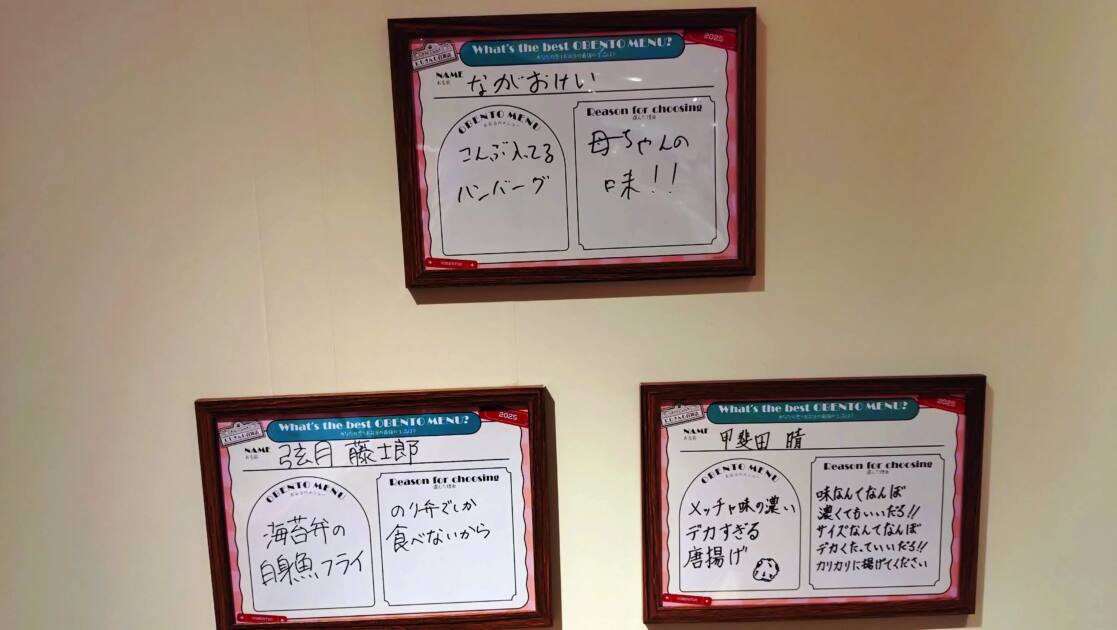 What's the best OBENTO MENU?
2025
NAME
お名前
ながおけい
OBENTO MENU
お弁当のメニュー
こんぶ入ってる
ハンバーグ
Reason for choosing
選んだ理由
母ちゃんの
味!!
What's the best OBENTO MENU?
2025
NAME
お名前
弦月 藤士郎
OBENTO MENU
お弁当のメニュー
海苔弁の
白身魚フライ
Reason for choosing
選んだ理由
のり弁でしか
食べないから
What's the best OBENTO MENU?
2025
NAME
お名前
甲斐田 晴
OBENTO MENU
お弁当のメニュー
メッチャ味の濃い
デカすぎる
唐揚げ
Reason for choosing
選んだ理由
味なんてなんぼ
濃くてもいいだろ!!
サイズなんてなんぼ
デカくたっていいだろ!!
カリカリに揚げてください